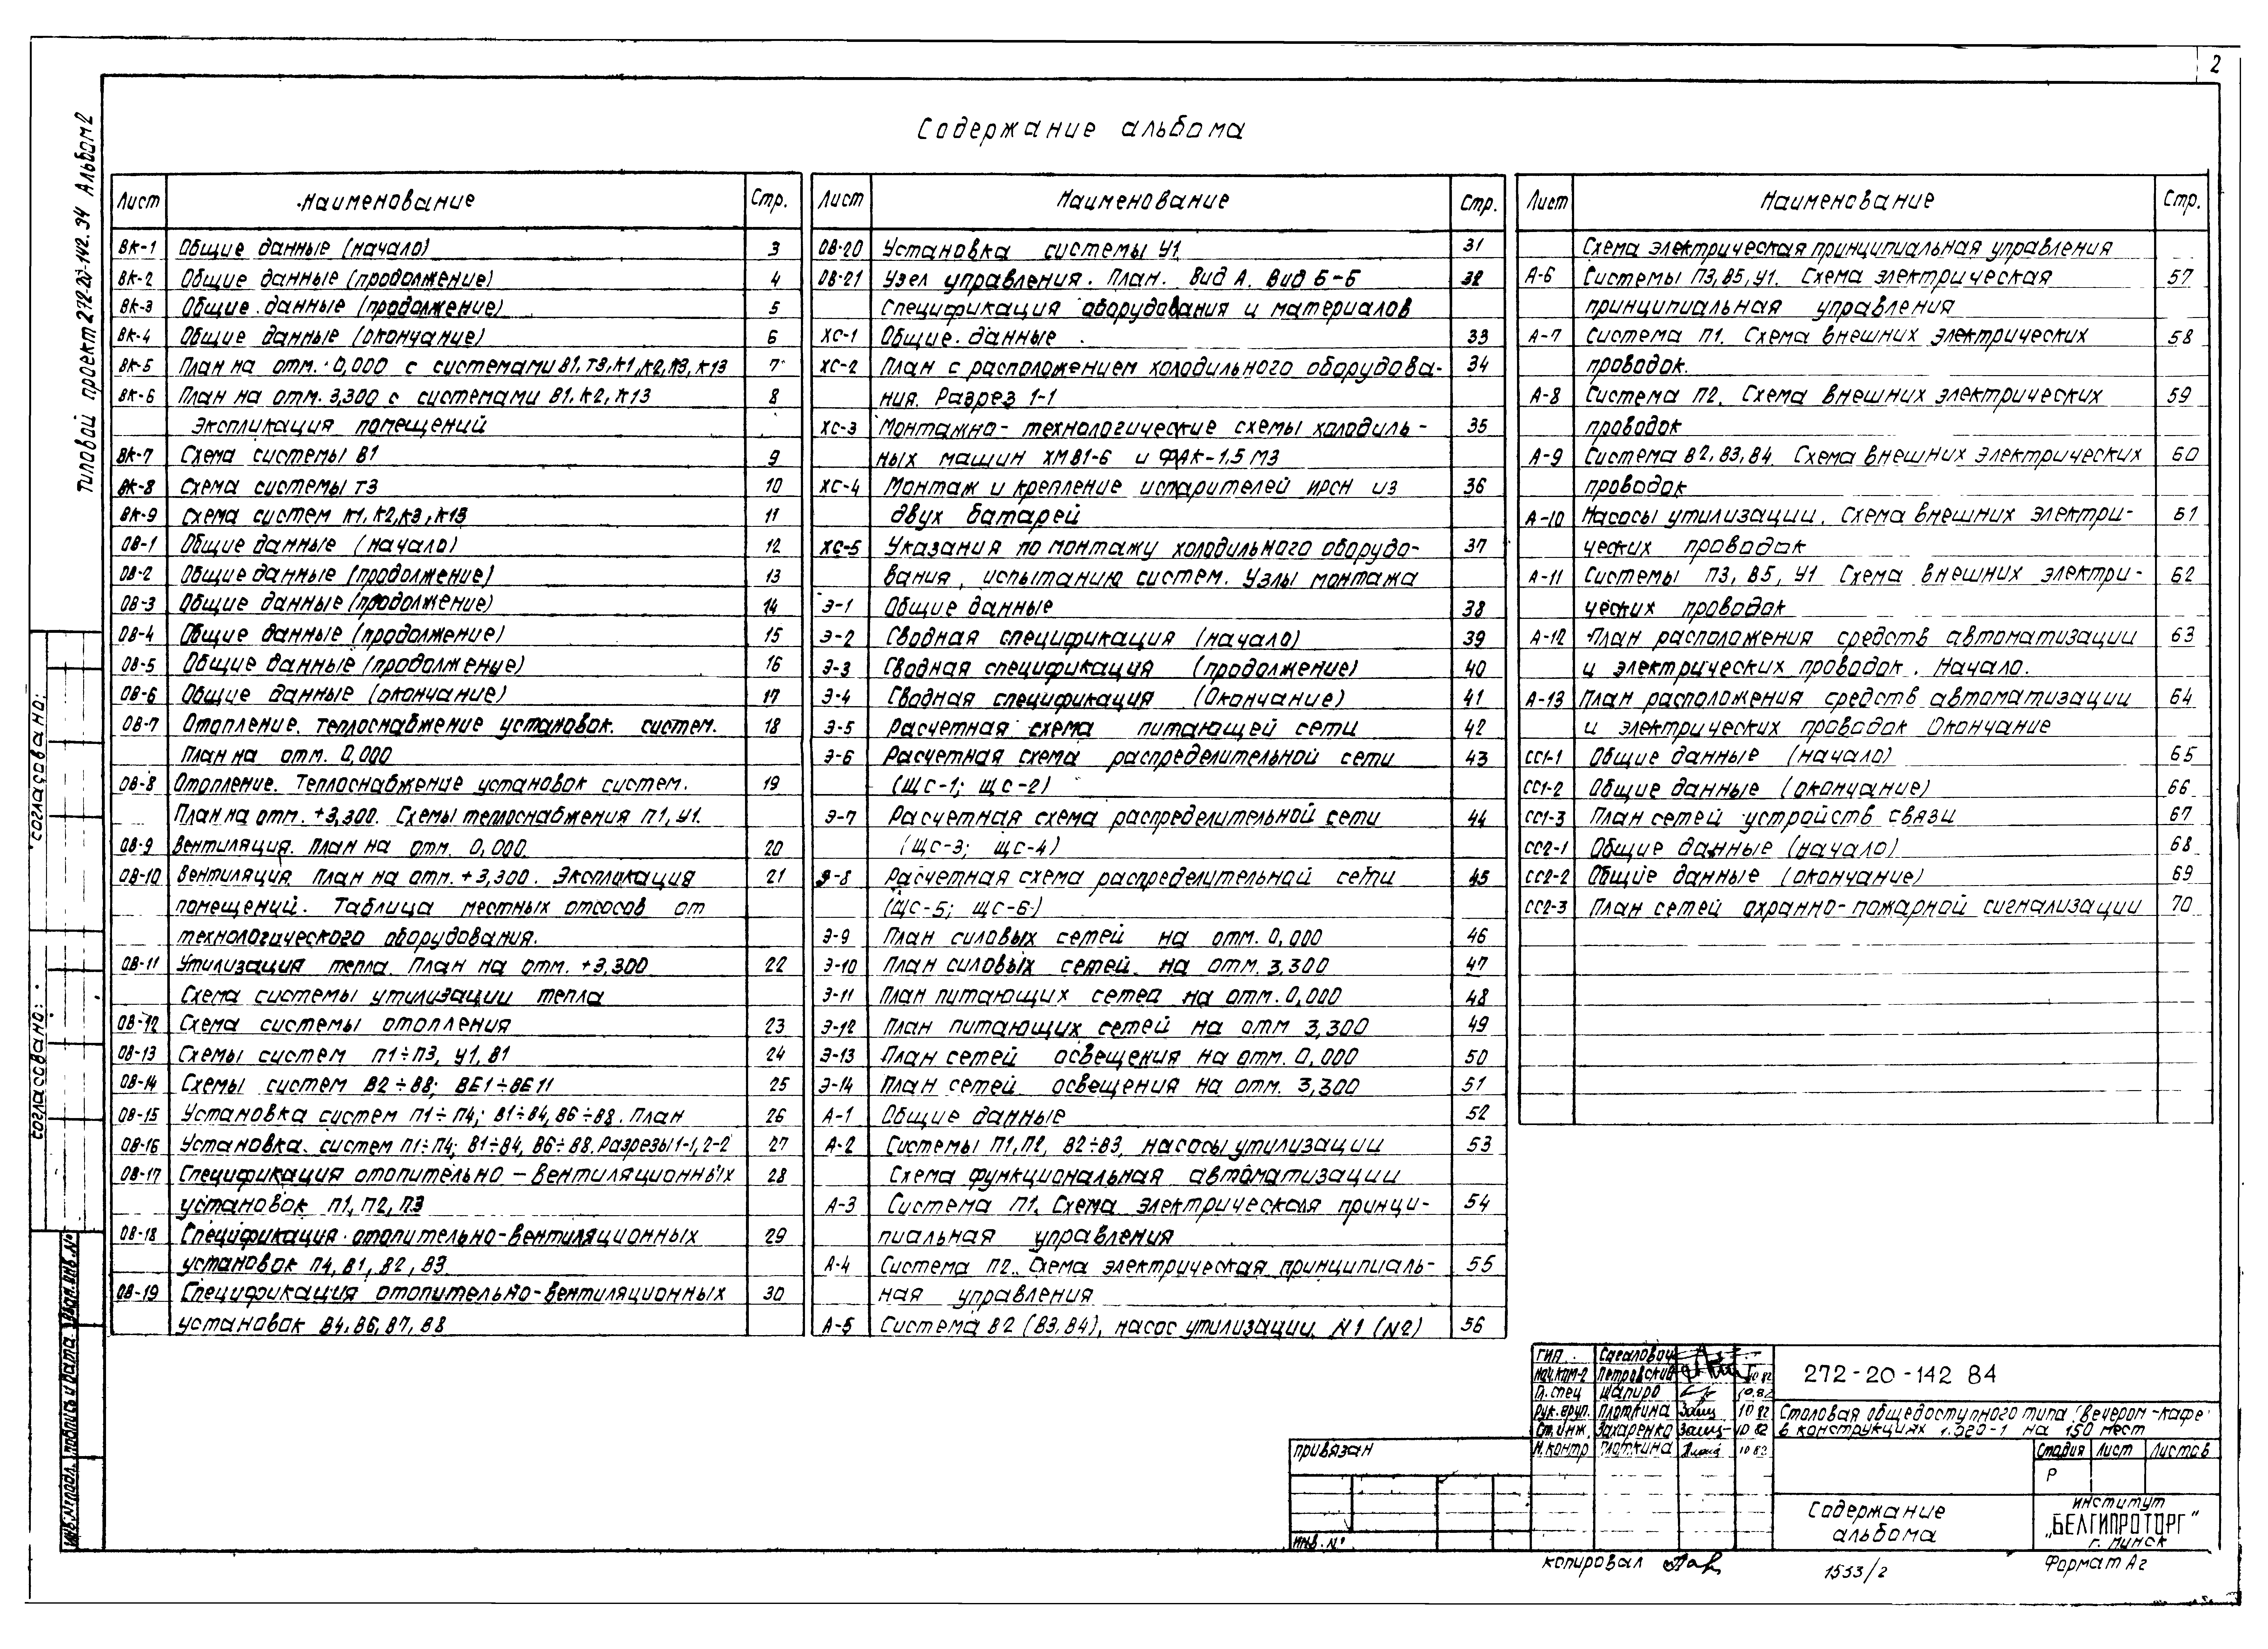 2
Типовой проект 272-20-142.94 Альбом 2
Содержание альбома
Лист Наименование Стр.
ВК-1 Общие данные (начало) 3
ВК-2 Общие данные (продолжение) 4
ВК-3 Общие данные (продолжение) 5
ВК-4 Общие данные (окончание) 6
ВК-5 План на отм. 0,000 с системами В1, Т3, К1, К2, К3, К13 7
ВК-6 План на отм. 3,300 с системами В1, К2, К13 8
Экспликация помещений
ВК-7 Схема системы В1 9
ВК-8 Схема системы Т3 10
ВК-9 Схема систем К1, К2, К3, К13 11
ОВ-1 Общие данные (начало) 12
ОВ-2 Общие данные (продолжение) 13
ОВ-3 Общие данные (продолжение) 14
ОВ-4 Общие данные (продолжение) 15
ОВ-5 Общие данные (продолжение) 16
ОВ-6 Общие данные (окончание) 17
ОВ-7 Отопление. Теплоснабжение установок. систем. 18
План на отм. 0,000
ОВ-8 Отопление. Теплоснабжение установок систем. 19
План на отм. +3,300. Схемы теплоснабжения П1, У1.
ОВ-9 Вентиляция. План на отм. 0,000. 20
ОВ-10 Вентиляция. План на отм. +3,300. Экспликация 21
помещений. Таблица местных отсосов от
технологического оборудования.
ОВ-11 Утилизация тепла. План на отм. +3,300 22
Схема системы утилизации тепла
ОВ-12 Схема системы отопления 23
ОВ-13 Схемы систем П1÷П3, У1, В1 24
ОВ-14 Схемы систем В2÷В8; ВЕ1÷ВЕ11 25
ОВ-15 Установка систем П1÷П4; В1÷В4, В6÷В8. План 26
ОВ-16 Установка. систем П1÷П4; В1÷В4, В6÷В8. Разрезы 1-1, 2-2 27
ОВ-17 Спецификация отопительно-вентиляционных 28
установок П1, П2, П3
ОВ-18 Спецификация отопительно-вентиляционных 29
установок П4, В1, В2, В3
ОВ-19 Спецификация отопительно-вентиляционных 30
установок В4, В6, В7, В8
Лист Наименование Стр.
ОВ-20 Установка системы У1. 31
ОВ-21 Узел управления. План. Вид А. Вид Б-Б 32
Спецификация оборудования и материалов
ХС-1 Общие данные 33
ХС-2 План с расположением холодильного оборудова- 34
ния. Разрез 1-1
ХС-3 Монтажно-технологические схемы холодиль- 35
ных машин ХМВ1-6 и ФАК-1,5 М3
ХС-4 Монтаж и крепление испарителей ИРСН из 36
двух батарей
ХС-5 Указания по монтажу холодильного оборудо- 37
вания, испытанию систем. Узлы монтажа
Э-1 Общие данные 38
Э-2 Сводная спецификация (начало) 39
Э-3 Сводная спецификация (продолжение) 40
Э-4 Сводная спецификация (Окончание) 41
Э-5 Расчетная схема питающей сети 42
Э-6 Расчетная схема распределительной сети 43
(ЩС-1; ЩС-2)
Э-7 Расчетная схема распределительной сети 44
(ЩС-3; ЩС-4)
Э-8 Расчетная схема распределительной сети 45
(ЩС-5; ЩС-6)
Э-9 План силовых сетей на отм. 0,000 46
Э-10 План силовых сетей на отм. 3,300 47
Э-11 План питающих сетей на отм. 0,000 48
Э-12 План питающих сетей на отм 3,300 49
Э-13 План сетей освещения на отм. 0,000 50
Э-14 План сетей освещения на отм. 3,300 51
А-1 Общие данные 52
А-2 Системы П1, П2, В2÷В3, насосы утилизации 53
Схема функциональная автоматизации
А-3 Система П1. Схема электрическая принци- 54
пиальная управления
А-4 Система П2. Схема электрическая принципиаль- 55
ная управления
А-5 Система В2 (В3, В4), насос утилизации N1 (N2) 56
Лист Наименование Стр.
Схема электрическая принципиальная управления
А-6 Системы П3, В5, У1. Схема электрическая 57
принципиальная управления
А-7 Система П1. Схема внешних электрических 58
проводок.
А-8 Система П2. Схема внешних электрических 59
проводок
А-9 Система В2, В3, В4. Схема внешних электрических 60
проводок
А-10 Насосы утилизации. Схема внешних электри- 61
ческих проводок
А-11 Системы П3, В5, У1 Схема внешних электри- 62
ческих проводок
А-12 План расположения средств автоматизации 63
и электрических проводок. Начало.
А-13 План расположения средств автоматизации 64
и электрических проводок Окончание
СС1-1 Общие данные (начало) 65
СС1-2 Общие данные (окончание) 66
СС1-3 План сетей устройств связи 67
СС2-1 Общие данные (начало) 68
СС2-2 Общие данные (окончание) 69
СС2-3 План сетей охранно-пожарной сигнализации 70
Согласовано:
Согласовано:
Инв.№ подл. Подпись и дата Взам.инв.№
ГИП Сагалович
Нач.КМ-2 Петровский 10 82
Гл. спец Шапиро 10.82
Рук. груп. Плоткина 10 82
Ст. инж. Захаренко 10 82
Н. контр Плоткина 10 82
272-20-142 84
Столовая общедоступного типа (вечером -кафе
в конструкциях 1.020-1 на 150 мест
Стадия Лист Листов
Р
Содержание
альбома
институт
„БЕЛГИПРОТОРГ"
г. Минск
Привязан
Инв. №
копировал
1533/2
Формат А2